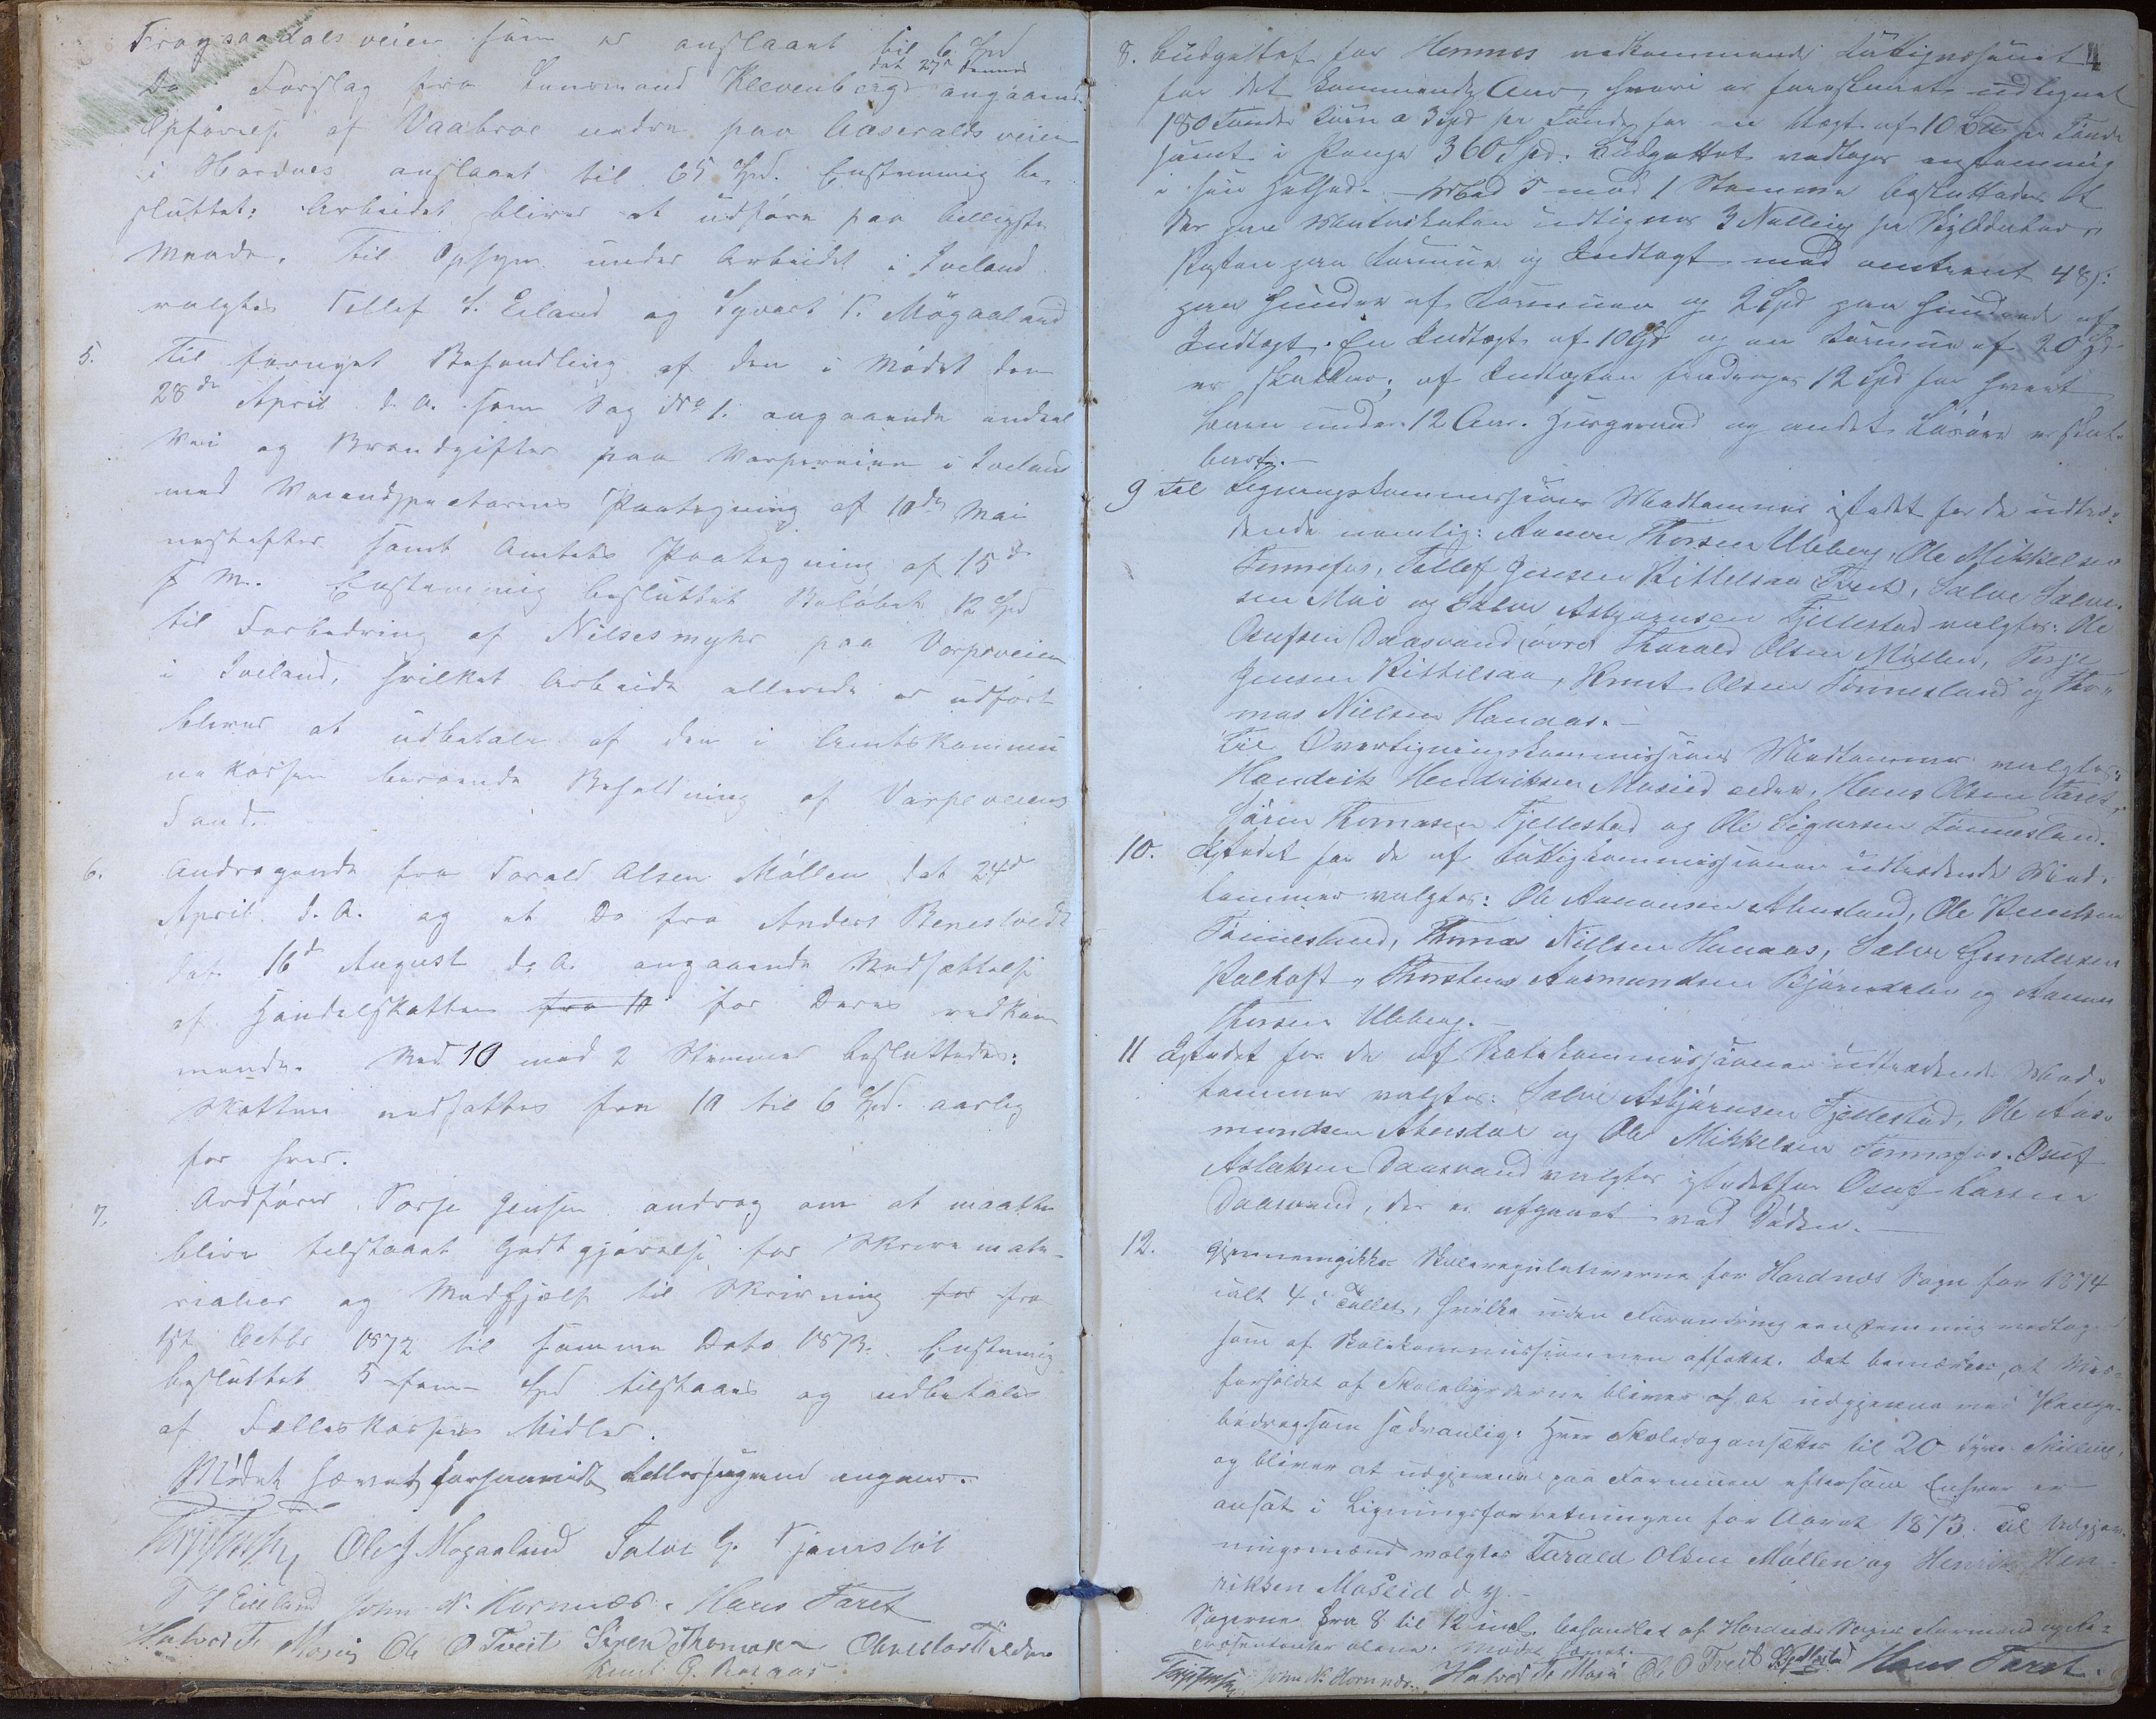 Frøysaadalsveien som er anslaaet til 6 Spd
Do Forslag fra Lensmand Klevenberg dat 27de dennes angaaende
Opførelse af Vaabroe nedre paa Aaseralds veien
i Hordnes anslaaet til 65 Spd. Enstemmig be-
sluttet: Arbeidet bliver at udføre paa billigste
Maade. Til Opsyn under Arbeidet i Iveland
valgtes Tellef S. Eiland og Syvert K. Møgaaland
5. Til fornyet Behandling af den i Mødet den
28de April d. A. som Sag No 1. angaaende endeel
Vei og Broudgifter paa Varpeveien i Iveland
med Veiinspecteurens Paategning af 10de Mai
næstefter samt Amtets Paategning af 15de
s. M. Enstemmig besluttet Beløbet 12 Spd
til Forbedring af Nilsesmyhr paa Varpeveien
i Iveland, hvilket Arbeide allerede er udført
bliver at udbetale af den i Amtskommu
nekassen beroende Beholdning af Varpeveiens
Fond.
6. Andragende fra Torald Olsen Møllen dat 24de
April d. A. og et Do fra Anders Beneslvedt
dat. 16de August d. A. angaaende Nedsættelse
af Handelskatten fra 10 for Deres vedkom
mende. Med 10 mod 2 Stemmer besluttedes:
Skatten nedsættes fra 10 til 6 Spd. aarlig
for hver.
7. Ordfører Torje Jensen androg om at maatte
blive tilstaaet Godtgjørelse for Skrivemate-
rialier og Medhjælp til Skrivning for fra
1st Octbr 1872 til samme Dato 1873. Enstemmig
besluttet 5 fem Spd tilstaaes og udbetales
af Fælleskassens Midler.
Mødet hævet forsaavidt Fællessagerne angaaer.
Ole J Mogaaland Salve G.
T S Eieland John N. Hornnæs. Hans Taret
Halvor Tr Mosei Ole O Tveit Søren Thomasen
Knut G.
8. Budgettet for Hornnes vedkommende Fattigvæsenet
for det kommende Aar, hvori er foreslaaet udlignet
180 Tønder Korn a 3 Spd pr Tønde for en Vægt af 10 pr Tønde
samt i Penge 360 Spd. Budgettet vedtages enstemmig
i sin Helhed. Med 5 mod 1 Stemme besluttedes at
der paa Matriskatten udlignes 3 pr Skylddaler,
Resten paa Formue og Indtægt med omtrent 48 s:
paa Hundre af Formuen og 2 Spd paa Hundrede af
Indtægt. En Indtægt af 10 Spd og en Formue af 20 Spd
er skatbar; af Indtægten fradrages 12 Spd for hvert
Barn under 12 Aar. Husgeraad og andet Løsøre er skat-
bart.
9 Til Ligningskommissionens Medlemmer istedet for de udtræ-
dende nemlig: Aanen Thorsen Ubberg, Ole Mikkelsen
Fennefos, Tellef Jensen Kittelsaa (Tveit), Salve Salve-
sen Moi og Salve Asbjørnsen Fjellestad valgtes: Ole
Osufsen Daasvand (øvre) Tharald Olsen Møllen, Terje
Jensen Kittilsaa, Knut Olsen Tønnesland og Tho-
mas Nielsen Hanaas.
Til Overligningskommissionens Medlemmer valgtes:
Hendrik Hendriksen Moseid ældre, Hans Olsen Taret,
Søren Thomasen Fjellestad og Ole Sigursen Tønnesland.
10. Istedet for de af Fattigkommissionen udtrædende Med-
lemmer valgtes: Ole Aanonsen Abusland, Ole Knudsen
Tønnesland, Thomas Nielsen Hanaas, Salve Gundersen
Kalhoft, Thorstein Aasmundsen Bjørndalen og Aanen
Thorsen Ubberg.
11 Istedet for de af Skolekommissionen udtrædende Med-
lemmer valgtes: Salve Asbjørnsen Fjellestad, Ole Aas-
mundsen Abusdal og Ole Mikkelsen Fennefos. Osuf
Aslaksen Daasvand valgtes istedetfor Osuf Larsen
Daasvand, der er afgaaet ved Døden.
12. Gjennemgikkes Skoleregulativerne for Hordnæs Sogn for 1874
ialt 4 i Tallet, hvilke uden Forandring eenstemmig vedtages
som af Skolekommissionnen affattet. Det bemærkes, at Ved-
forholdet af Skolebyrderne bliver at udgjørne med Penge-
bidrag som sædvanlig. Hver Skoledag ansættes til 20 tyve Skilling,
og bliver at udgjernes paa Formuen eftersom Enhver er
ansat i Ligningsforretningen for Aaret 1873. Til Udgjer-
ningsmænd valgtes Tarald Olsen Møllen og Henrik Hen-
riksen Moseid d. y.
Sagerne fra 8 til 12 incl. behandlet af Hordnæs Sogns Formænd og Re-
præsentanter alene. Mødet hævet.
John N. Hornnæs. Halvor Tr Mosei Ole O Tveit Hans Taret.